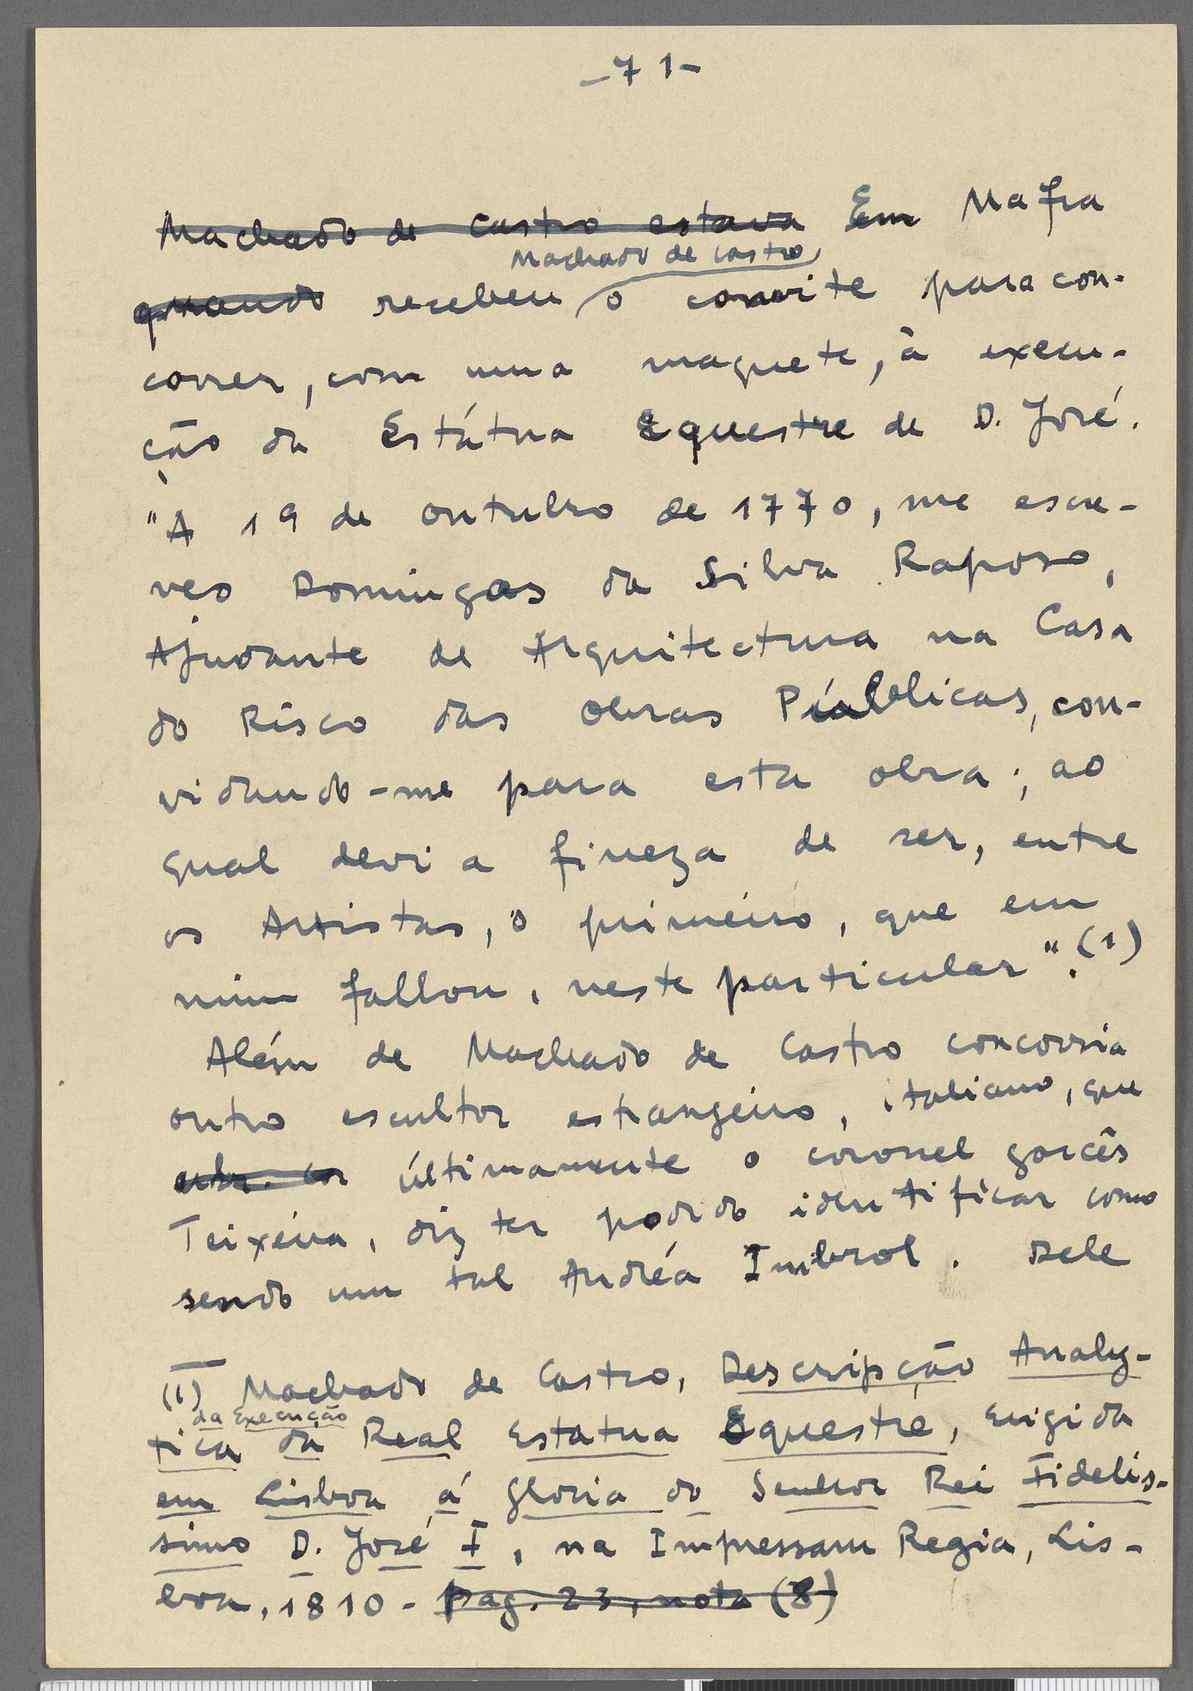 -71-
Machado de Castro estava Em Mafra
Machado de Castro
quando recebeu o convite para con-
correr, com uma maquete, à execu-
ção da Estátua Equestre de D. José.
"A 19 de outubro de 1770, me escre-
veo Domingos da Silva Raposo,
Ajudante de Arquitectura na Casa
do Risco das Obras Públicas, con-
vidando-me para esta obra; ao
qual devi a fineza de ser, entre
os Artistas, o primeiro, que em
mim fallou, neste particular". (1)
Além de Machado de Castro concorria
outro escultor estrangeiro, italiano, que
últimamente o coronel Garcês
Teixeira, diz ter podido identificar como
sendo um tal Andréa Imbrol. Dele
(1) Machado de Castro, Descripção Analy-
da Execução
tica da Real Estatua Equestre, Erigida
em Lisboa á Gloria do Senhor Rei Fidelis-
simo D. José I, na Impressam Regia, Lis-
boa, 1810 - pag. 23, nota (8)